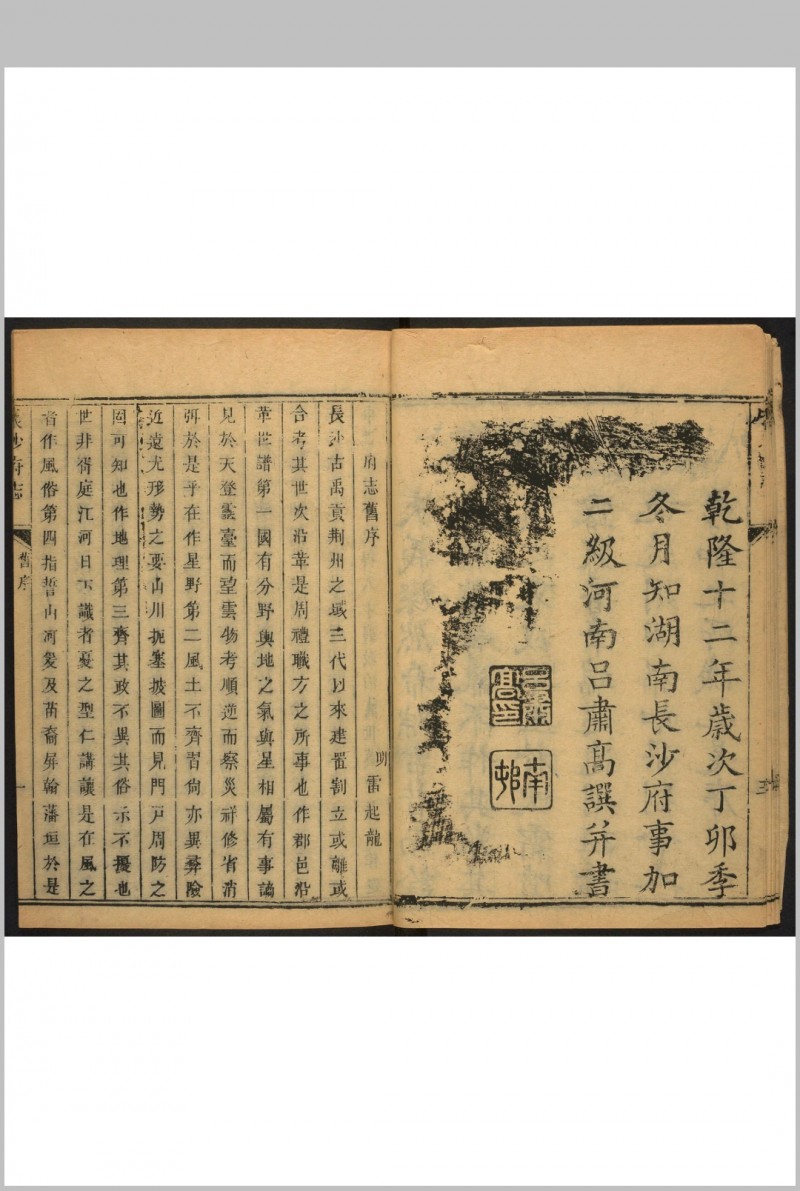 乾隆十二年歲次丁卯季
冬月知湖南長沙府事加
二級河南呂肅高譔并書
南邨
府志舊序
明 雷起龍
長沙古禹貢荆州之域三代以來建置割立或離或
合考其世次沿革是周禮職方之所事也作郡邑沿
革世譜第一國有分野輿地之氣與星相屬有事讁
見於天登靈臺而望雲物考順逆而察災祥修省消
弭於是乎在作星野第二風土不齊習尙亦異彞險
近遠尤形勢之要山川扼塞披圖而見門戸周防之
固可知也作地理第三齊其政不異其俗示不擾也
世非胥庭江河日下識者憂之型仁講讓是在風之
者作風俗第四指誓山河爰及苗裔屏翰藩垣於是
長沙府志
舊序
一